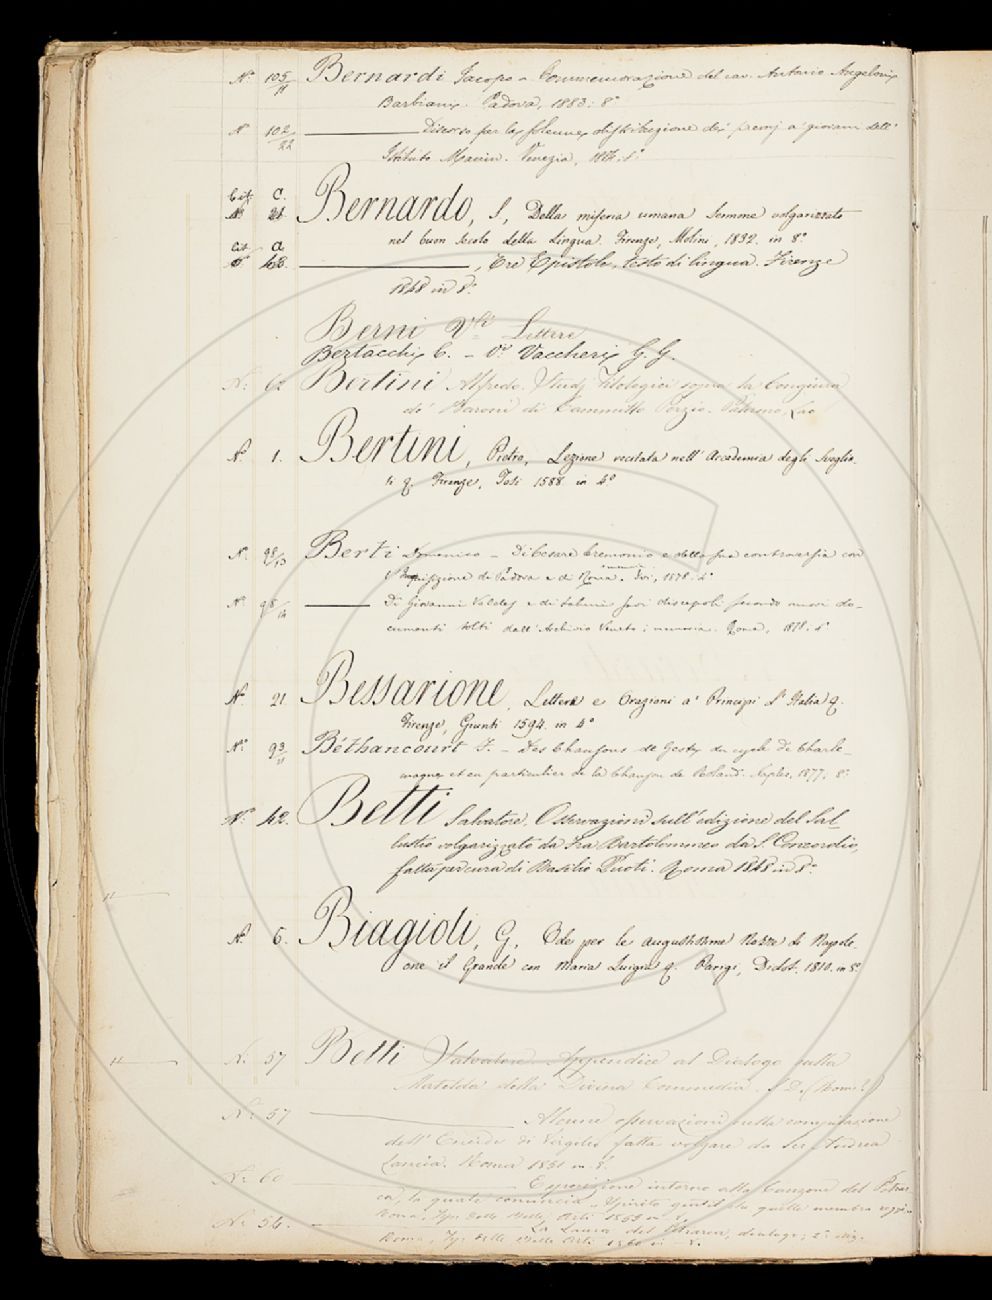 N.° 105/11 Bernardi Jacopo – Commemorazione del cav. Antonio Angeloni
Barbiani. Padova, 1883. 8°
N 102/22 ——— Discorso per la solenne distribuzione dei premj a' giovani dell'
Istituto Manin. Venezia,
Cit. C.
N° 21. Bernardo, S., Della miseria umana Sermone volgarizzato
nel buon Secolo della Lingua. Firenze, Molini, 1832. in 8°
Cit. a
48. ———, Tre Epistole, testo di lingua. Firenze
1848 in 8°
Berni Lettere
Bertacchi C. – V. Vaccheri G. G.
N. Bertini Alfredo. Studj filologici sopra la Congiura
de' Baroni di Cammillo Porzio. Palermo, Lao
N. 1. Bertini, Pietro, Lezione recitata nell' Accademia degli Sveglia-
ti &. Firenze, Tosi 1588. in 4°
N. 98/13 Berti Domenico – Di Cesare Cremonio e della sua controversia con
l'Inquisizione di Padova e di Roma. Ivi, 1878. 4°
N. 98/14 ——— Di Giovanni Valdes e di taluni suoi discepoli secondo nuovi do-
cumenti tolti dall' Archivio Veneto; memoria. Roma, 1878. 4°
N. 21. Bessarione, Lettere e Orazioni a' Principi d' Italia &.
Firenze, Giunti 1594. in 4°
N.° 93/11 Béthancourt F. – Des Chansons de Geste du cycle de Charle-
magne et en particulier de la Chanson de Roland. Naples, 1877. 8°
N.° 42. Betti Salvatore, Osservazioni sull' edizione del Sal-
lustio volgarizzato da Fra Bartolommeo da S. Concordio,
fatta per cura di Basilio Puoti. Roma 1848 in 8°
N. 6. Biagioli, G., Ode per le augustissime Nozze di Napole-
one il Grande con Maria Luigia &. Parigi, Didot. 1810. in 8°
N. 57 Betti Salvatore Appendice al Dialogo sulla
Matelda della Divina Commedia. S. D. (Roma?)
N. 57 ——— Alcune osservazioni sulla
dell' Eneide di Virgilio fatta volgare da Ser Andrea
Lancia. Roma 1851 in 8°
N. 60 ——— Esposizione intorno alla Canzone del Petrar-
ca, la quale comincia „Spirto gentil che quelle membra reggi„
Roma, Tip. delle Belle Arti
N. 56. ——— La Laura del Petrarca, dialogo; 2ª ediz.
Roma, Tip. delle Belle Arti